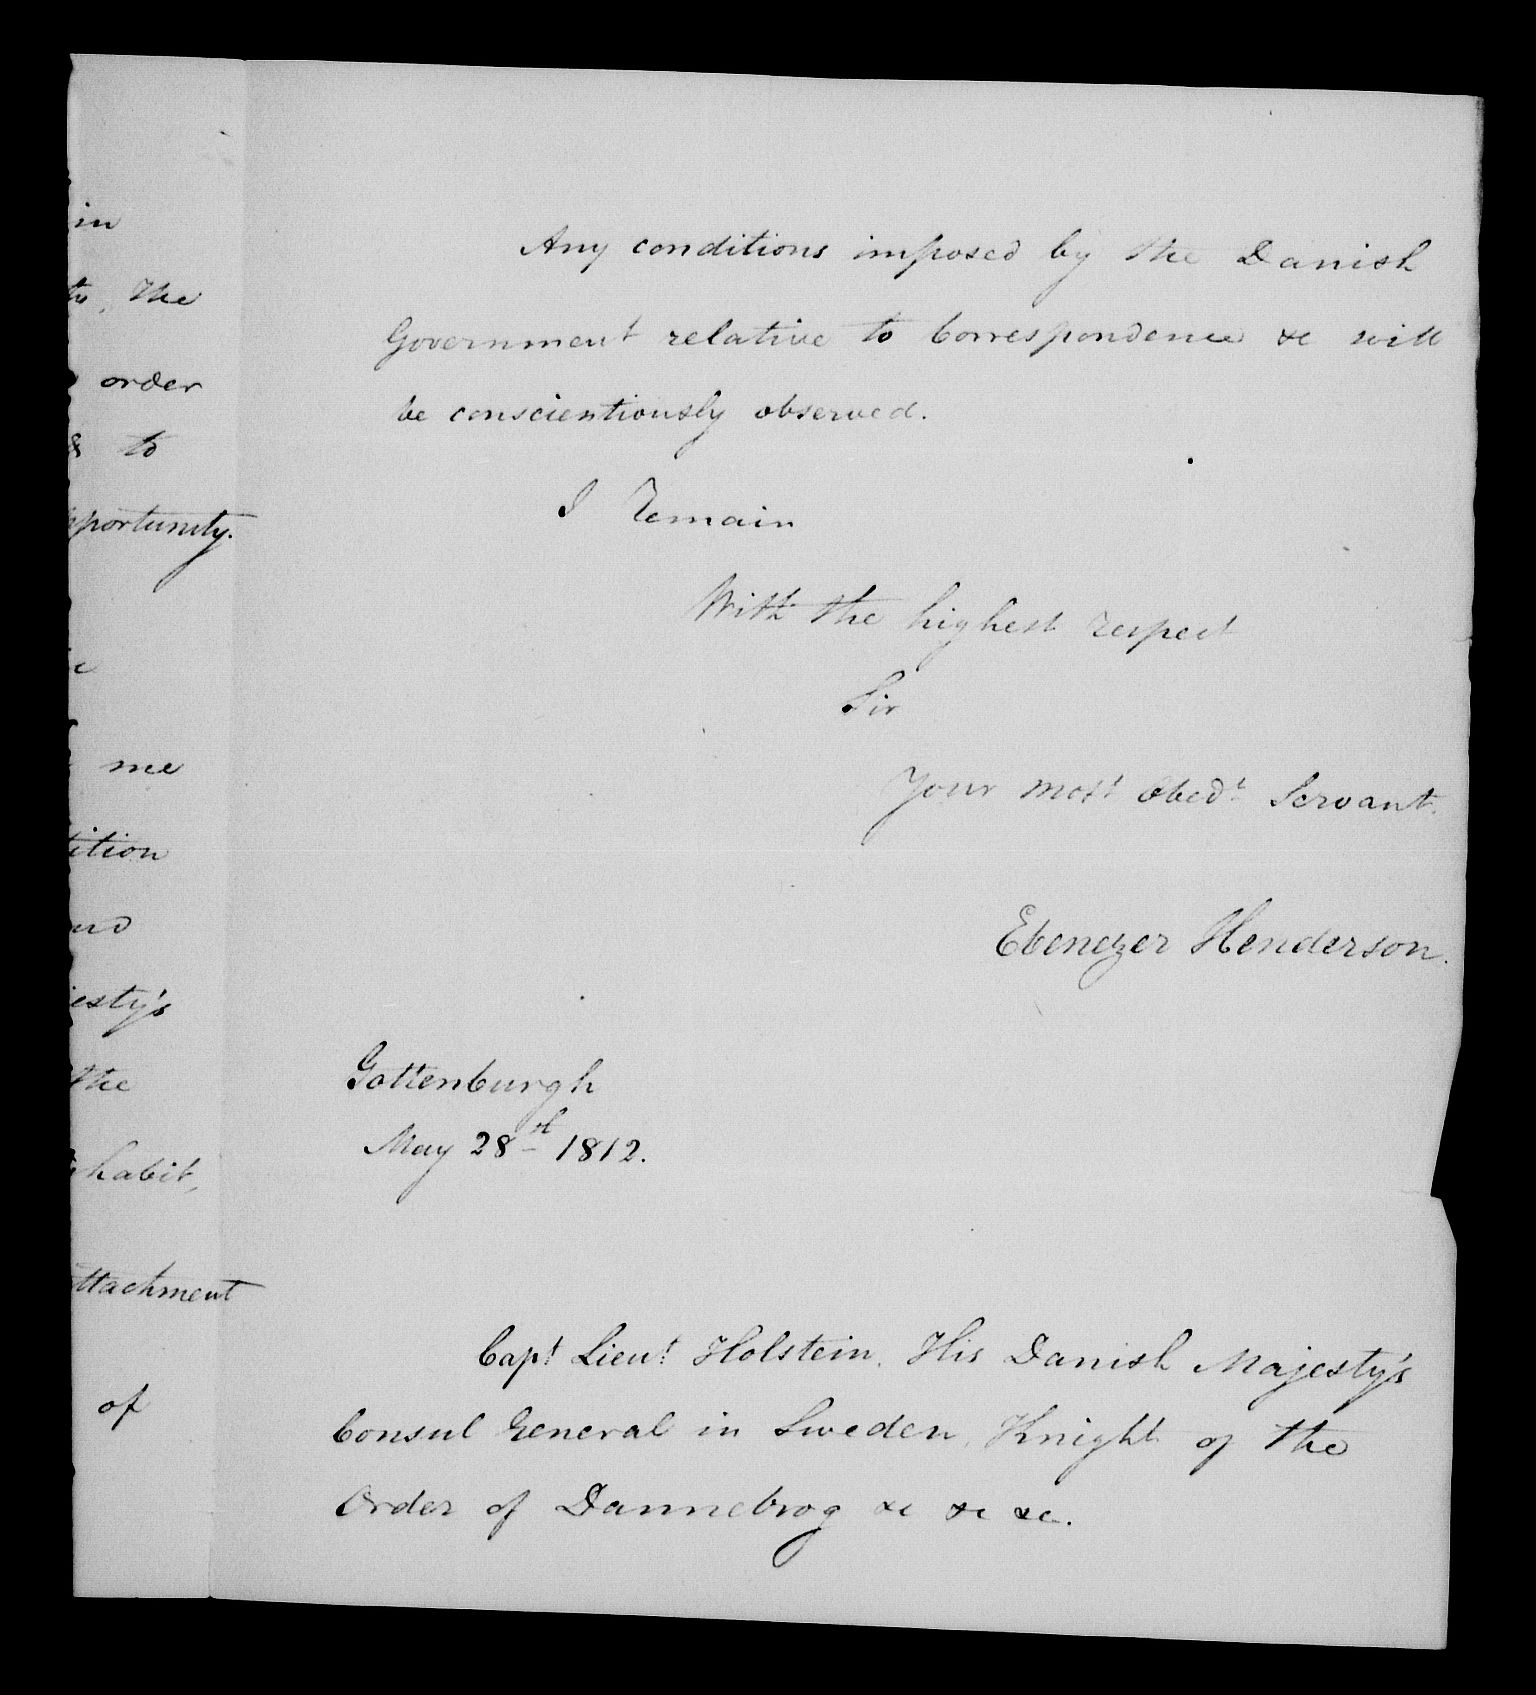 in
the
order
& to
pportunity.
me
tition
esty's
the
habit,
ttachment
of
Any conditions imposed by the Danish
Government relative to Correspondence &c will
be conscientiously observed.
I Remain
With the highest respect
Sir
Your most Obedt Servant.
Ebenezer Henderson.
Gottenburgh
May 28th 1812.
Capt Lieut Holstein, His Danish Majesty's
Consul General in Sweden, Knight of the
Order of Dannebrog &c &c &c.